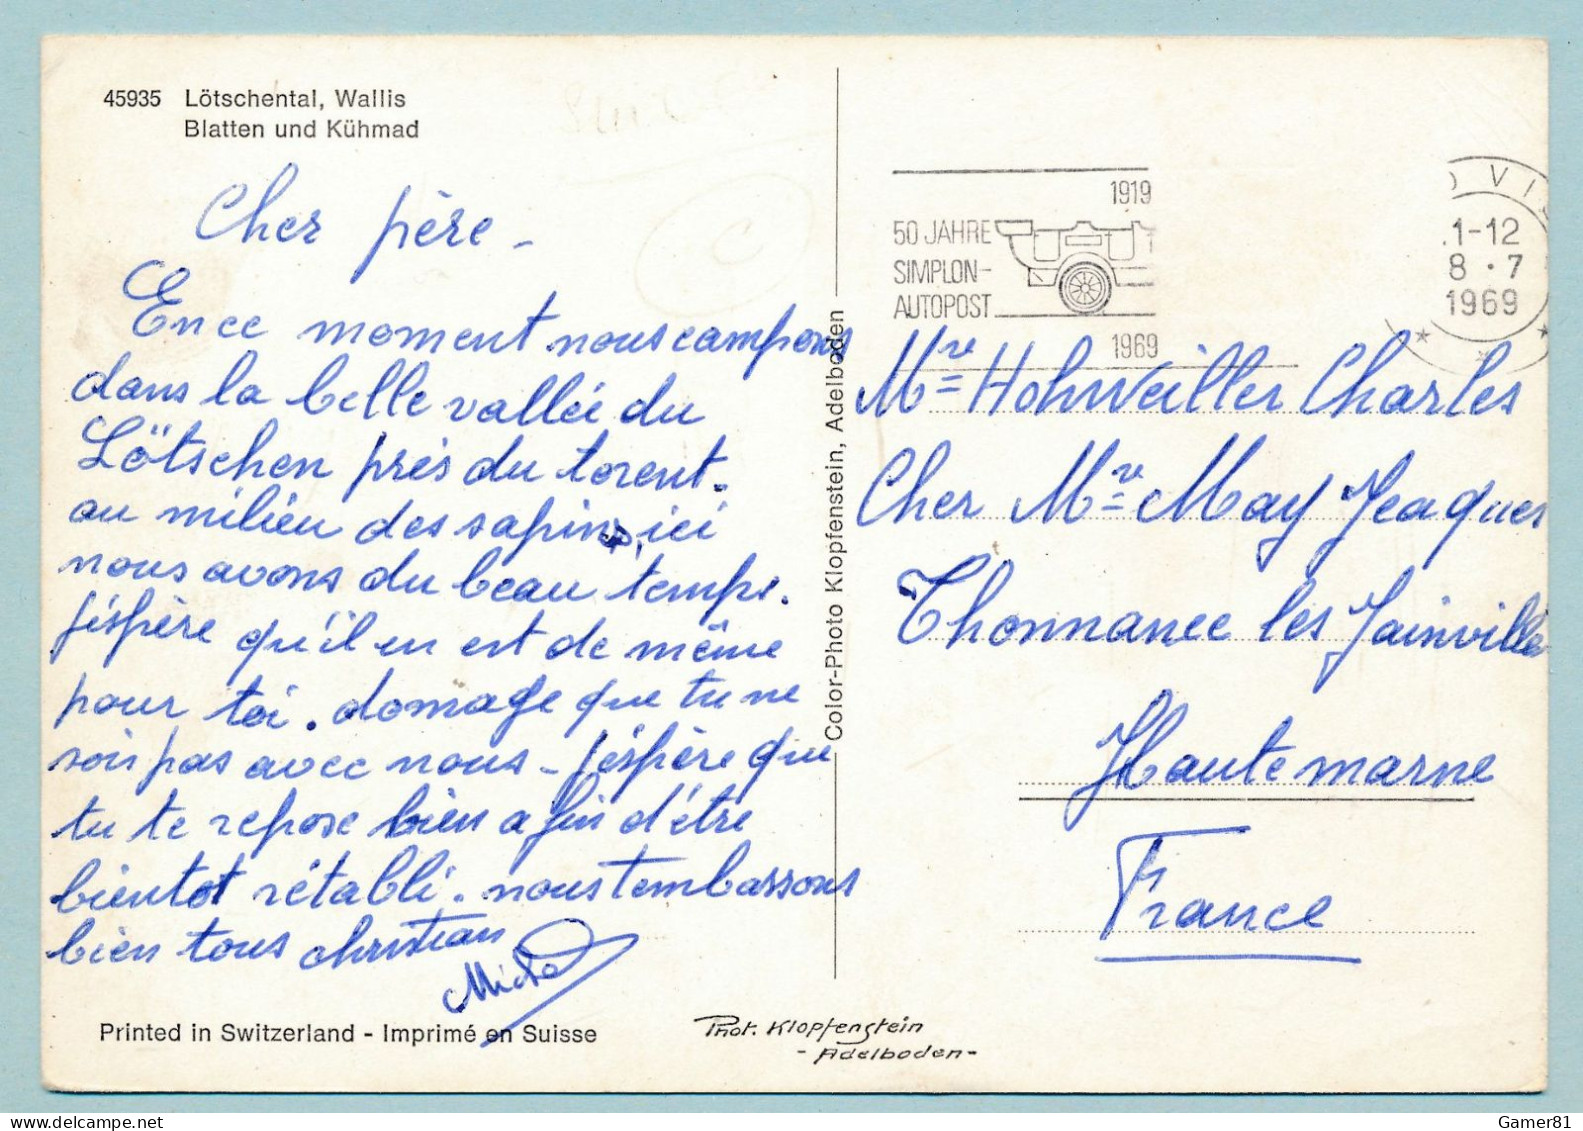 45935 Lötschental, Wallis
Blatten und Kühmad
Cher père -
En ce moment nous campons
dans la belle vallée du
Lötschen près du torent.
au milieu des sapins, ici
nous avons du beau temps.
j'éspère qu'il en est de même
pour toi. domage que tu ne
soit pas avec nous - j'éspère que
tu te repose bien afin d'être
bientot rétabli. nous t'embassons
bien tous christian
Printed in Switzerland - Imprimé en Suisse
Color-Photo Klopfenstein, Adelboden
Phot. Klopfenstein
- Adelboden -
1919
50 JAHRE
SIMPLON-
AUTOPOST
1969
VI
1-12
8 · 7
1969
Mre Hohweiller Charles
Cher Mr May Jeaques
Thonnance les Jainville
Haute marne
France
Gamer81